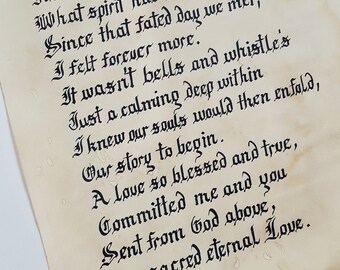 What spirit has
Since that fated day we met,
I felt forever more.
It wasn't bells and whistle's
Just a calming deep within
I knew our souls would then enfold,
Our story to begin.
A love so blessed and true,
Committed me and you
Sent from God above,
sacred eternal Love.